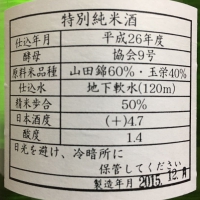 特別純米酒
仕込年月 平成26年度
酵母 協会9号
原料米品種 山田錦60%・玉栄40%
仕込水 地下軟水(120m)
精米歩合 50%
日本酒度 (+)4.7
酸度 1.4
日光を避け、冷暗所に
保管してください
製造年月 2015.12.